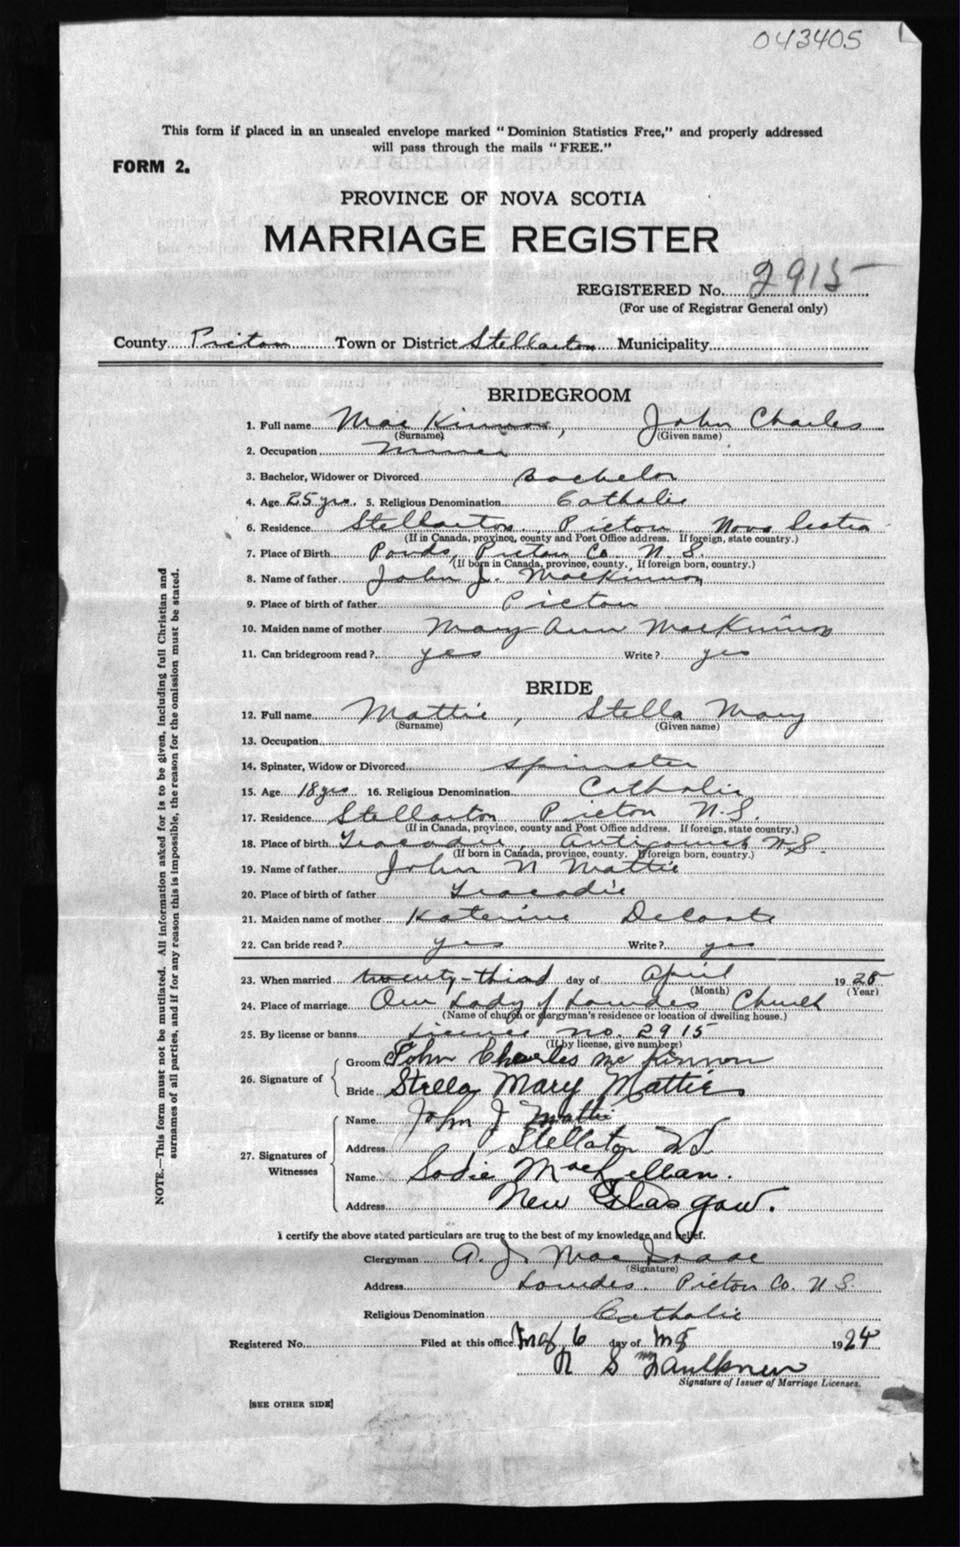 043405
This form if placed in an unsealed envelope marked "Dominion Statistics Free," and properly addressed
will pass through the mails "FREE."
FORM 2.
PROVINCE OF NOVA SCOTIA
MARRIAGE REGISTER
REGISTERED No. 2915
(For use of Registrar General only)
County Pictou Town or District Stellarton Municipality
BRIDEGROOM
1. Full name MacKinnon, John Charles
(Surname) (Given name)
2. Occupation Miner
3. Bachelor, Widower or Divorced Bachelor
4. Age 25 yrs. 5. Religious Denomination Catholic
6. Residence Stellarton, Pictou, Nova Scotia
(If in Canada, province, county and Post Office address. If foreign, state country.)
7. Place of Birth Ponds, Pictou Co. N. S.
(If born in Canada, province, county. If foreign born, country.)
8. Name of father John J. MacKinnon
9. Place of birth of father Pictou
10. Maiden name of mother Mary Ann MacKinnon
11. Can bridegroom read? yes Write? yes
BRIDE
12. Full name Mattie, Stella Mary
(Surname) (Given name)
13. Occupation
14. Spinster, Widow or Divorced spinster
15. Age 18 yrs 16. Religious Denomination Catholic
17. Residence Stellarton Pictou N.S.
(If in Canada, province, county and Post Office address. If foreign, state country.)
18. Place of birth Tracadie, Antigonish N.S.
(If born in Canada, province, county. If foreign born, country.)
19. Name of father John N Mattie
20. Place of birth of father Tracadie
21. Maiden name of mother Katerine Decoste
22. Can bride read? yes Write? yes
23. When married twenty-third day of April 1925
(Month) (Year)
24. Place of marriage Our Lady of Lourdes Church
(Name of church or clergyman's residence or location of dwelling house.)
25. By license or banns License no. 2915
(If by license, give number)
Groom John Charles McKinnon
26. Signature of
Bride Stella Mary Mattie
Name John J Mattie
Address Stellarton N.S.
27. Signatures of
Witnesses
Name Sadie MacLellan.
Address New Glasgow.
I certify the above stated particulars are true to the best of my knowledge and belief.
Clergyman A. J. MacIsaac
(Signature)
Address Lourdes, Pictou Co. N S.
Religious Denomination Catholic
Registered No. Filed at this office 6 day of 192
R S Faulkner
Signature of Issuer of Marriage Licenses.
[SEE OTHER SIDE]
NOTE.—This form must not be mutilated. All information asked for is to be given, including full Christian and
surnames of all parties, and if for any reason this is impossible, the reason for the omission must be stated.